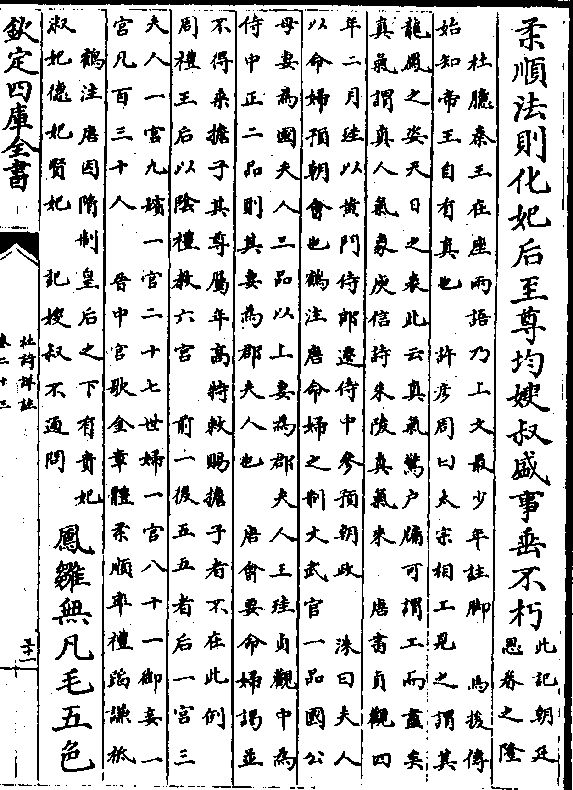 柔順法則化妃后至尊均嫂叔盛事垂不朽
此記朝廷
恩眷之隆
杜臆秦王在座兩語乃上文最少年註脚 馬援傳
始知帝王自有真也 許彦周曰太宗相工見之謂其
龍鳳之姿天日之表此云真氣驚户牖可謂工而盡矣
真氣謂真人氣象庾信詩朱陵真氣來 唐書貞觀四
年二月珪以黄門侍郎遷侍中參預朝政 洙曰夫人
以命婦預朝會也鶴注唐命婦之制文武官一品國公
母妻為國夫人三品以上妻為郡夫人王珪貞觀中為
侍中正二品則其妻為郡夫人也 唐會要命婦謁並
不得乘擔子其尊屬年高特敕賜擔子者不在此例
周禮王后以陰禮教六宫 前一後五五者后一宫三
夫人一宫九嬪一宫二十七世婦一宫八十一御妻一
宫凡百三十人 晉中宫歌金章體柔順率禮蹈謙祗
鶴注唐因隋制皇后之下有貴妃
淑妃徳妃賢妃 記嫂叔不通問
鳳雛無凡毛五色
欽定四庫全書
杜詩詳註
卷二十三